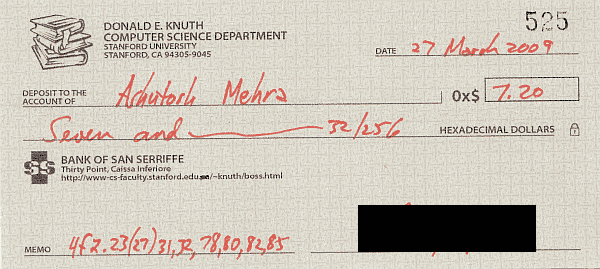 525
DONALD E. KNUTH
COMPUTER SCIENCE DEPARTMENT
STANFORD UNIVERSITY
STANFORD, CA 94305-9045
DATE 27 March 2009
DEPOSIT TO THE
ACCOUNT OF Ashutosh Mehra 0x$ 7.20
Seven and 32/256 HEXADECIMAL DOLLARS
BANK OF SAN SERRIFFE
Thirty Point, Caissa Inferiore
http://www-cs-faculty.stanford.edu/~knuth/boss.html
MEMO 4f2.23(27)31,32,78,80,82,85